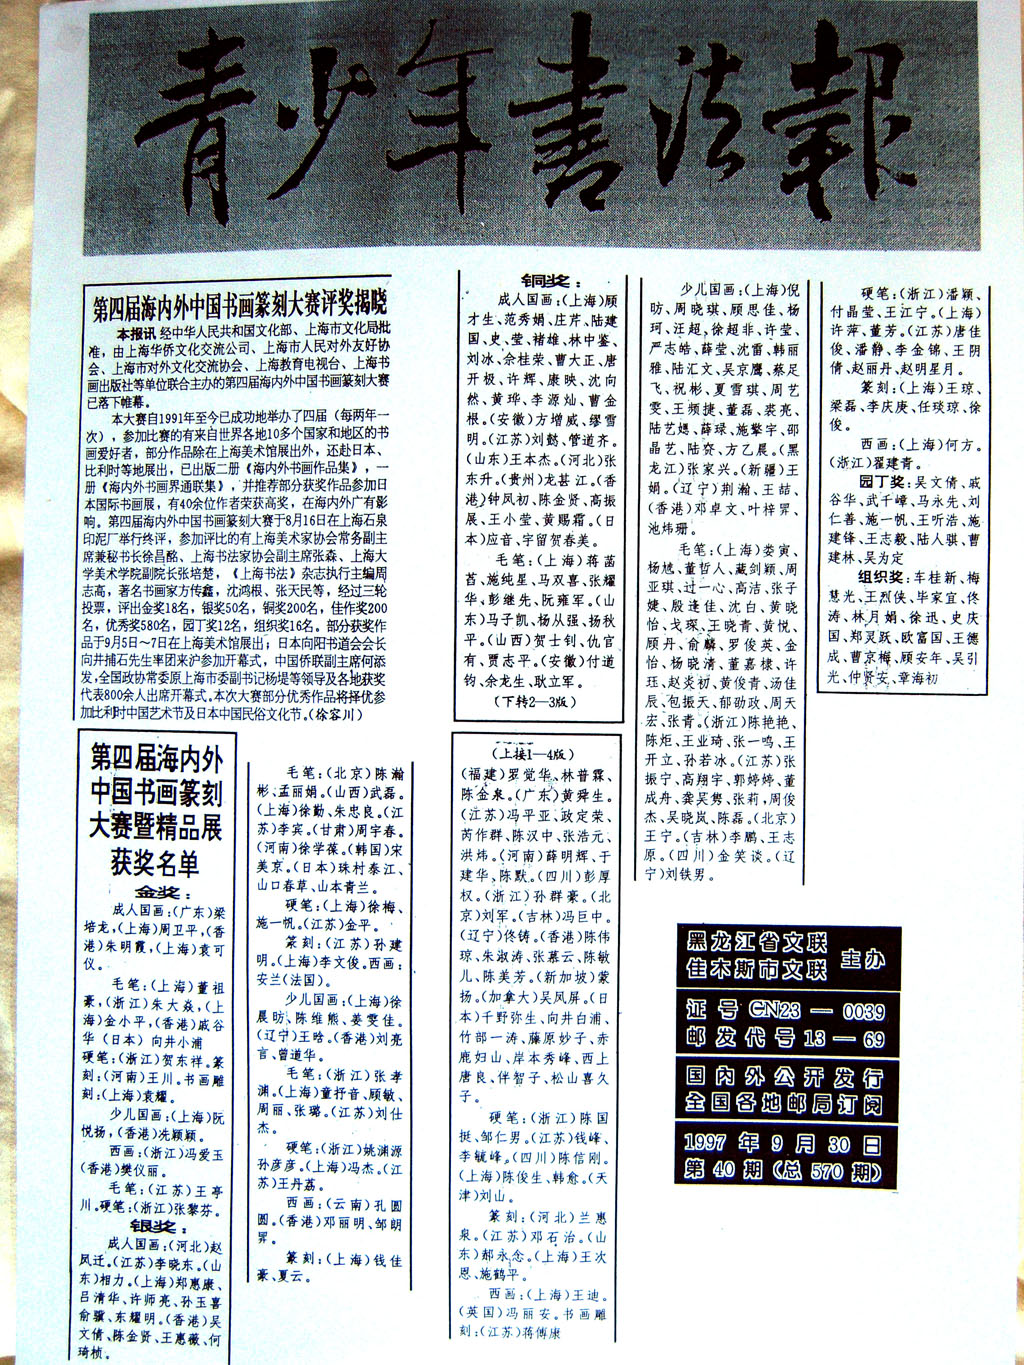 青少年書法報
第四届海内外中国书画篆刻大赛评奖揭晓
本报讯 经中华人民共和国文化部、上海市文化局批
准，由上海华侨文化交流公司、上海市人民对外友好协
会、上海市对外文化交流协会、上海教育电视台、上海书
画出版社等单位联合主办的第四届海内外中国书画篆刻大赛
已落下帷幕。
本大赛自1991年至今已成功地举办了四届（每两年一
次），参加比赛的有来自世界各地10多个国家和地区的书
画爱好者，部分作品除在上海美术馆展出外，还赴日本、
比利时等地展出，已出版二册《海内外书画作品集》，一
册《海内外书画界通联集》，并推荐部分获奖作品参加日
本国际书画展，有40余位作者荣获高奖，在海内外广有影
响。第四届海内外中国书画篆刻大赛于8月16日在上海石泉
印泥厂举行终评，参加评比的有上海美术家协会常务副主
席兼秘书长徐昌酩、上海书法家协会副主席张森、上海大
学美术学院副院长张培楚，《上海书法》杂志执行主编周
志高，著名书画家方传鑫，沈鸿根、张天民等，经过三轮
投票，评出金奖18名，银奖50名，铜奖200名，佳作奖200
名，优秀奖580名，园丁奖12名，组织奖16名。部分获奖作
品于9月5日～7日在上海美术馆展出；日本向阳书道会会长
向井捕石先生率团来沪参加开幕式，中国侨联副主席何添
发，全国政协常委原上海市委副书记杨堤等领导及各地获奖
代表800余人出席开幕式。本次大赛部分优秀作品将择优参
加比利时中国艺术节及日本中国民俗文化节。(徐容川)
第四届海内外
中国书画篆刻
大赛暨精品展
获奖名单
金奖：
成人国画：(广东)梁
培龙，(上海)周卫平，(香
港)朱明霞，(上海)袁可
仪。
毛笔：(上海)董祖
豪，(浙江)朱大焱，(上
海)金小平，(香港)戚谷
华（日本）向井小浦
硬笔：(浙江)贺东祥。篆
刻：(河南)王川。书画雕
刻：(上海)袁耀。
少儿国画：(上海)阮
悦扬，(香港)冼颖颖。
西画：(浙江)冯爱玉
(香港)樊仪丽。
毛笔：(江苏)王亭
川。硬笔：(浙江)张黎芬。
银奖：
成人国画：(河北)赵
凤迁。(江苏)李晓东。(山
东)相力。(上海)郑惠康、
吕清华、许师亮、孙玉喜
俞骥、东耀明。(香港)吴
文倩、陈金贤、王惠薇、何
琦桢。
毛笔：(北京)陈瀚
彬、孟丽娟。(山西)武磊。
(上海)徐勤、朱忠良。(江
苏)李宾。(甘肃)周宇春。
(河南)徐学葆。(韩国)宋
美京。(日本)珠村泰江、
山口春草、山本青兰。
硬笔：(上海)徐梅、
施一帆。(江苏)金平。
篆刻：(江苏)孙建
明。(上海)李文俊。西画：
安兰(法国)。
少儿国画：(上海)徐
晨昉、陈维熊、姜雯佳。
(辽宁)王晗。(香港)刘亮
言、曾道华。
毛笔：(浙江)张孝
渊。(上海)童抒音、顾敏、
周丽、张璐。(江苏)刘仕
杰。
硬笔：(浙江)姚渊源
孙彦彦。(上海)冯杰。(江
苏)王丹荔。
西画：(云南)孔圆
圆。(香港)邓丽明、邹朗
羿。
篆刻：(上海)钱佳
豪、夏云。
铜奖：
成人国画：(上海)顾
才生、范秀娟、庄芹、陆建
国、史、莹、褚雄、林中鉴、
刘冰、佘桂荣、曹大正、唐
开极、许辉、康映、沈向
然、黄琤、李源灿、曹金
根。(安徽)方增威、缪雪
明。(江苏)刘懿、管道齐。
(山东)王本杰。(河北)张
东升。(贵州)龙甚江。(香
港)钟凤初、陈金贤、高振
展、王小莹、黄赐霜。(日
本)应音、宇留贺春美。
毛笔：(上海)蒋菡
苕、施纯星、马双喜、张耀
华、彭继先、阮雍军。(山
东)马子凯、杨从强、扬秋
平。(山西)贺士钊、仇官
有、贾志平。(安徽)付道
钧、余龙生、耿立军。
(下转2—3版)
(上接1—4版)
(福建)罗觉华、林普霖、
陈金泉。(广东)黄舜生。
(江苏)冯平亚、政定荣、
芮作群、陈汉中、张浩元、
洪炜。(河南)薛明辉、于
建华、陈默。(四川)彭厚
权。(浙江)孙群豪。(北
京)刘军。(吉林)冯巨中。
(辽宁)佟铸。(香港)陈伟
琼、朱淑涛、张慕云、陈敏
儿、陈美芳。(新加坡)蒙
扬。(加拿大)吴风屏。(日
本)千野弥生、向井白浦、
竹部一涛、藤原妙子、赤
鹿妇山、岸本秀峰、西上
唐良、伴智子、松山喜久
子。
硬笔：(浙江)陈国
挺、邹仁男。(江苏)钱峰、
李毓峰。(四川)陈信刚。
(上海)陈俊生、韩愈。(天
津)刘山。
篆刻：(河北)兰惠
泉。(江苏)邓石治。(山
东)郝永念。(上海)王次
恩、施鹤平。
西画：(上海)王迪。
(英国)冯丽安。书画雕
刻：(江苏)蒋傅康
少儿国画：(上海)倪
昉、周晓琪、顾思佳、杨
珂、汪超、徐超非、许莹、
严志皓、薛莹、沈雷、韩丽
雅、陆汇文、吴京鹰、蔡足
飞、祝彬、夏雪琪、周艺
雯、王频捷、董磊、裘亮、
陆艺媤、薛琭、施擎宇、邵
晶艺、陆赟、方乙晨。(黑
龙江)张家兴。(新疆)王
娟。(辽宁)荆瀚、王喆、
(香港)邓卓文、叶梓羿、
池炜珊。
毛笔：(上海)娄寅、
杨尯、董哲人、藏剑颖、周
亚琪、过一心、高洁、张子
婕、殷逢佳、沈白、黄晓
怡、戈琛、王晓青、黄悦、
顾丹、俞麟、罗俊英、金
怡、杨晓清、董嘉棣、许
珏、赵炎初、黄俊青、汤佳
辰、包振天、郁劭政、周天
宏、张青。(浙江)陈艳艳、
陈炬、王业琦、张一鸣、王
开立、孙若冰。(江苏)张
振宁、高翔宇、郭婷婷、董
成舟、龚吴隽、张莉，周俊
杰、吴晓岚、陈磊。(北京)
王宁。(吉林)李鹏、王志
原。(四川)金笑谈。(辽
宁)刘铁男。
硬笔：(浙江)潘颖、
付晶莹、王江宁。(上海)
许萍、董芳。(江苏)唐佳
俊、潘静、李金锦、王阴
倩、赵丽丹、赵明星月。
篆刻：(上海)王琼、
梁磊、李庆庚、任琰琼、徐
俊。
西画：(上海)何方。
(浙江)翟建青。
园丁奖：吴文倩、戚
谷华、武千嶂、马永先、刘
仁善、施一帆、王听浩、施
建锋、王志毅、陆人骐、曹
建林、吴为定
组织奖：车桂新、梅
慧光、王烈侠、毕家宜、佟
涛、林月娟、徐迅、史庆
国、郑灵跃、欧富国、王德
成、曹京梅、顾安年、吴引
光、仲贤安、章海初
黑龙江省文联
佳木斯市文联 主办
证号 CN23—0039
邮发代号 13—69
国内外公开发行
全国各地邮局订阅
1997年9月30日
第40期（总570期）